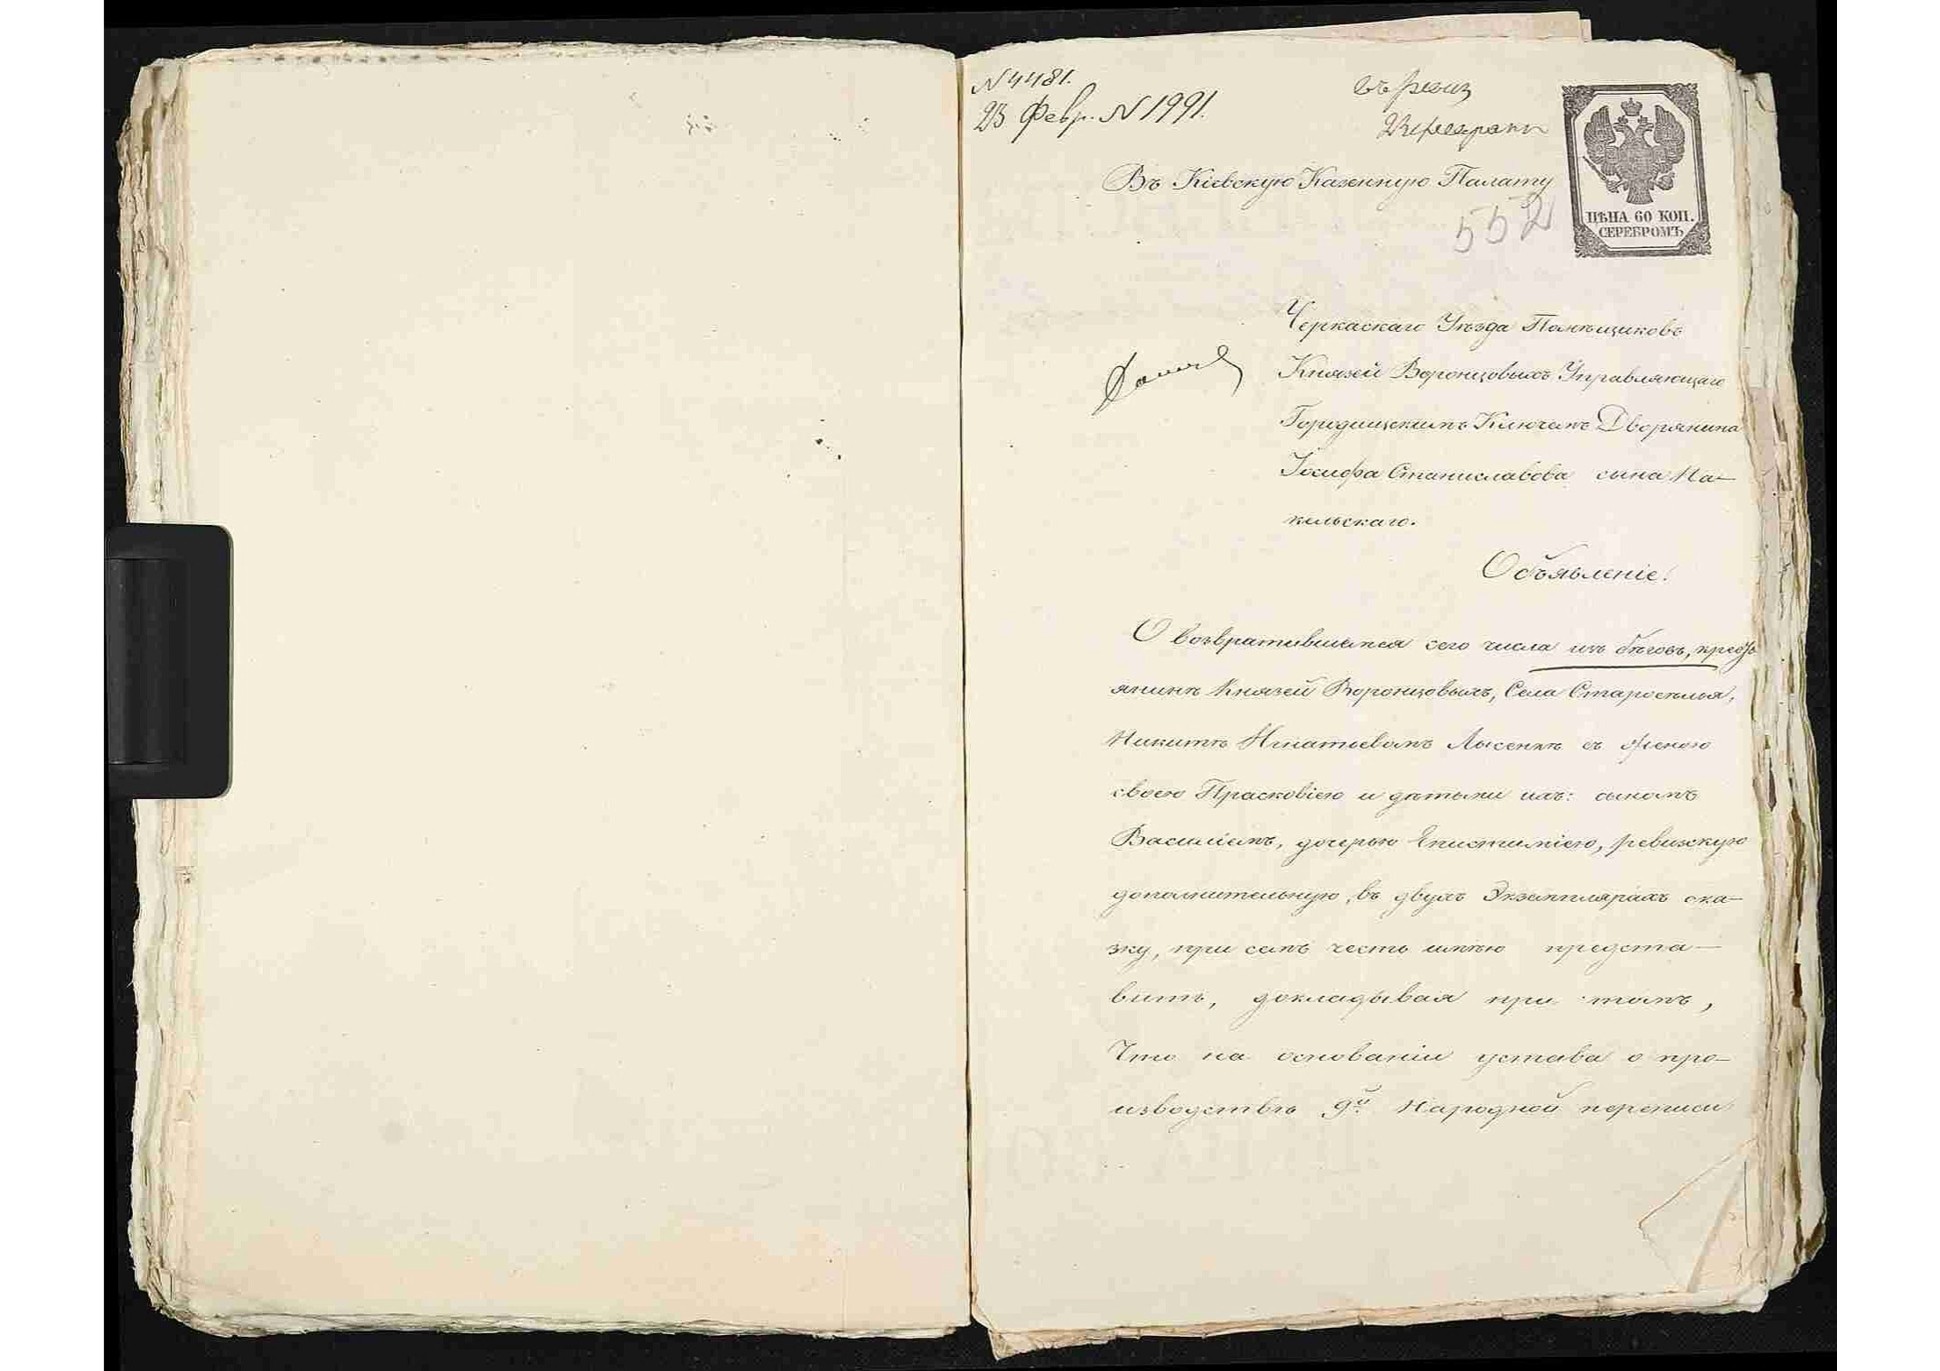 N 4481.
23 Февр. N 1991.
въ ревиз
Въ Кіевскую Казенную Палату
552
ЦѢНА 60 КОП.
СЕРЕБРОМЪ
Черкаскаго Уѣзда Помѣщиковъ
Князей Воронцовыхъ Управляющаго
Городищскимъ Ключемъ Дворянина
Іосифа Станиславова сына На-
кильскаго.
Объявленіе.
О возвратившемся сего числа изъ бѣговъ, кресть
янинѣ Князей Воронцовыхъ, Села Староселья,
Никитѣ Игнатьевомъ Лысенкѣ съ женою
своею Прасковіею и дѣтьми ихъ: сыномъ
Василіемъ, дочерью Епистиміею, ревизскую
дополнительную, въ двухъ Экземплярахъ ска-
зку, при семъ честь имѣю предста-
вить, докладывая при томъ,
Что на основаніи устава о про-
изводствѣ 9й Народной переписи